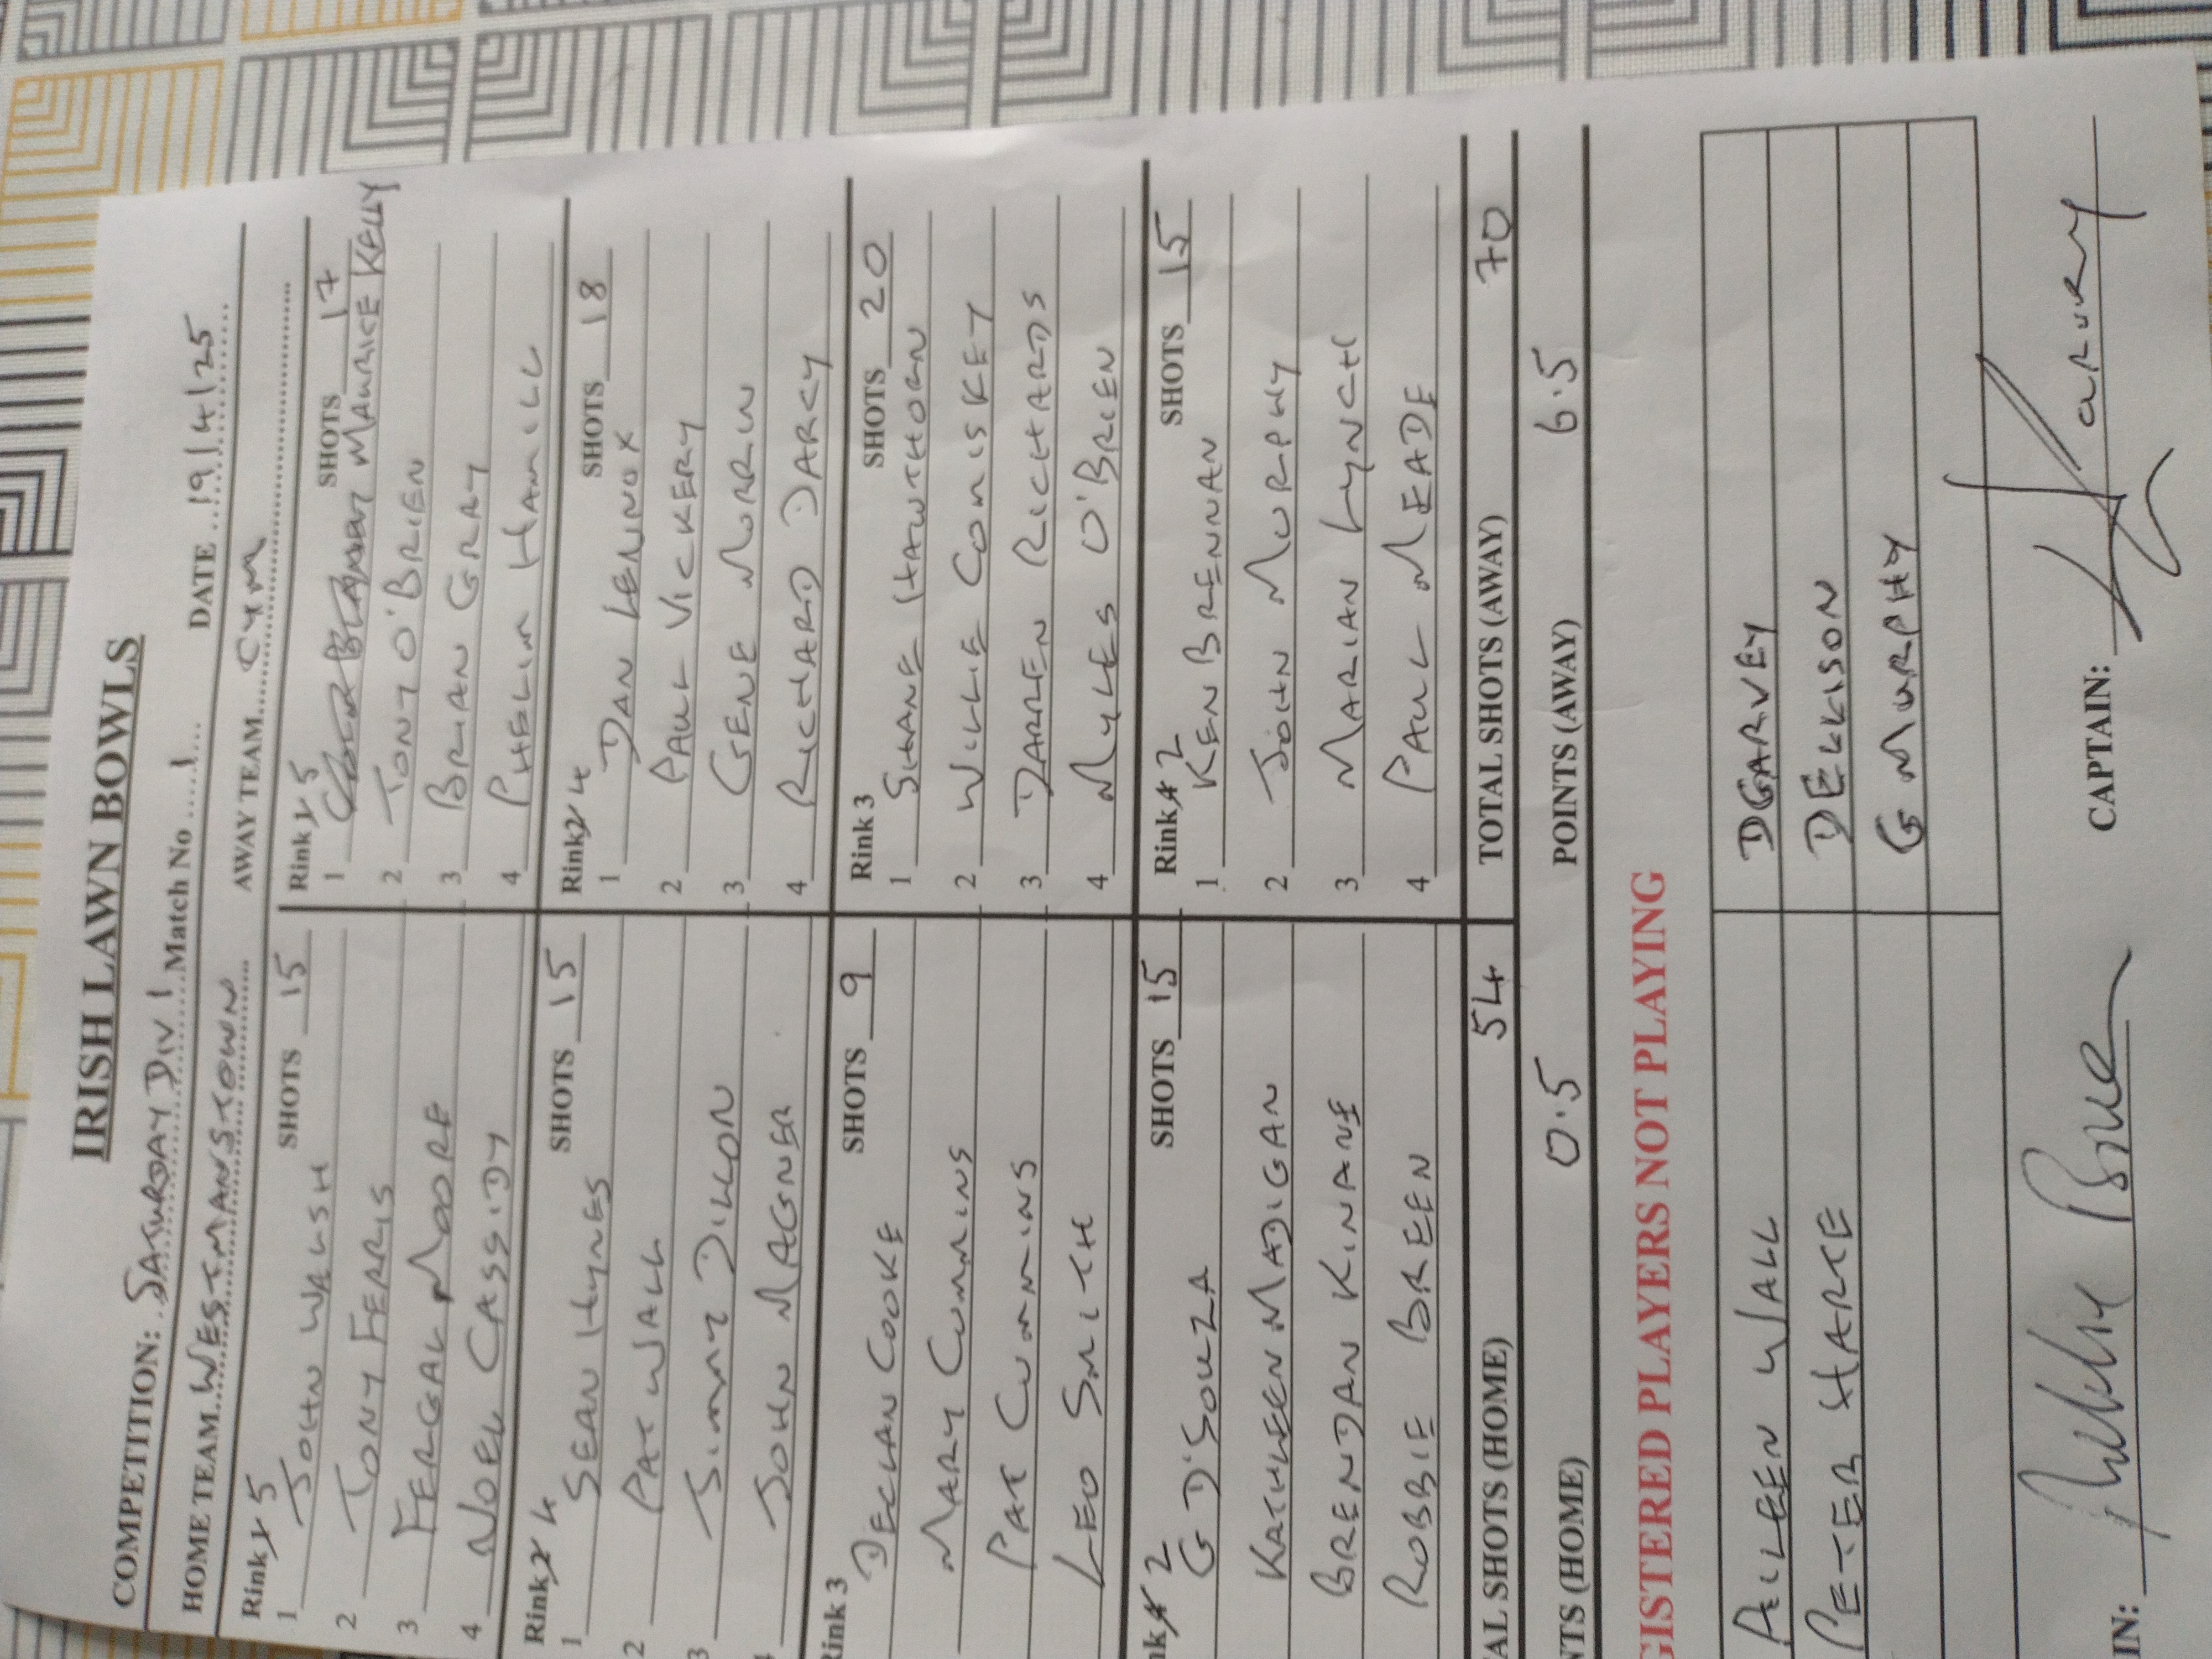 IRISH LAWN BOWLS
COMPETITION: SATURDAY DIV 1 Match No 1 DATE 19/4/25
HOME TEAM WESTMANSTOWN AWAY TEAM CYM
Rink 5 SHOTS 15
1 JOHN WALSH
2 TONY FERRIS
3 FERGAL MOORE
4 NOEL CASSIDY
Rink 4 SHOTS 15
1 SEAN HYNES
2 PAT WALL
3 JIMMY DILLON
JOHN MAGNER
Rink 3 SHOTS 9
DECLAN COOKE
MARY CUMMINS
PAT CUMMINS
LEO SMITH
nk 2 SHOTS 15
G D'SOUZA
KATHLEEN MADIGAN
BRENDAN KINANE
ROBBIE BREEN
AL SHOTS (HOME) 54
NTS (HOME) 0.5
Rink 5 SHOTS 17
1 MAURICE KELLY
2 TONY O'BRIEN
3 BRIAN GRAY
4 PHELIM HAMILL
Rink 4 SHOTS 18
1 DAN LENNOX
2 PAUL VICKERY
3 GENE MORRIN
4 RICHARD DARCY
Rink 3 SHOTS 20
1 SHANE HAWTHORN
2 WILLIE COMISKEY
3 DARREN RICHARDS
4 MYLES O'BRIEN
Rink 2 SHOTS 15
1 KEN BRENNAN
2 JOHN MURPHY
3 MARIAN LYNCH
4 PAUL MEADE
TOTAL SHOTS (AWAY) 70
POINTS (AWAY) 6.5
GISTERED PLAYERS NOT PLAYING
AILEEN WALL D GARVEY
PETER HARTE D ELLISON
G MURPHY
IN: CAPTAIN: